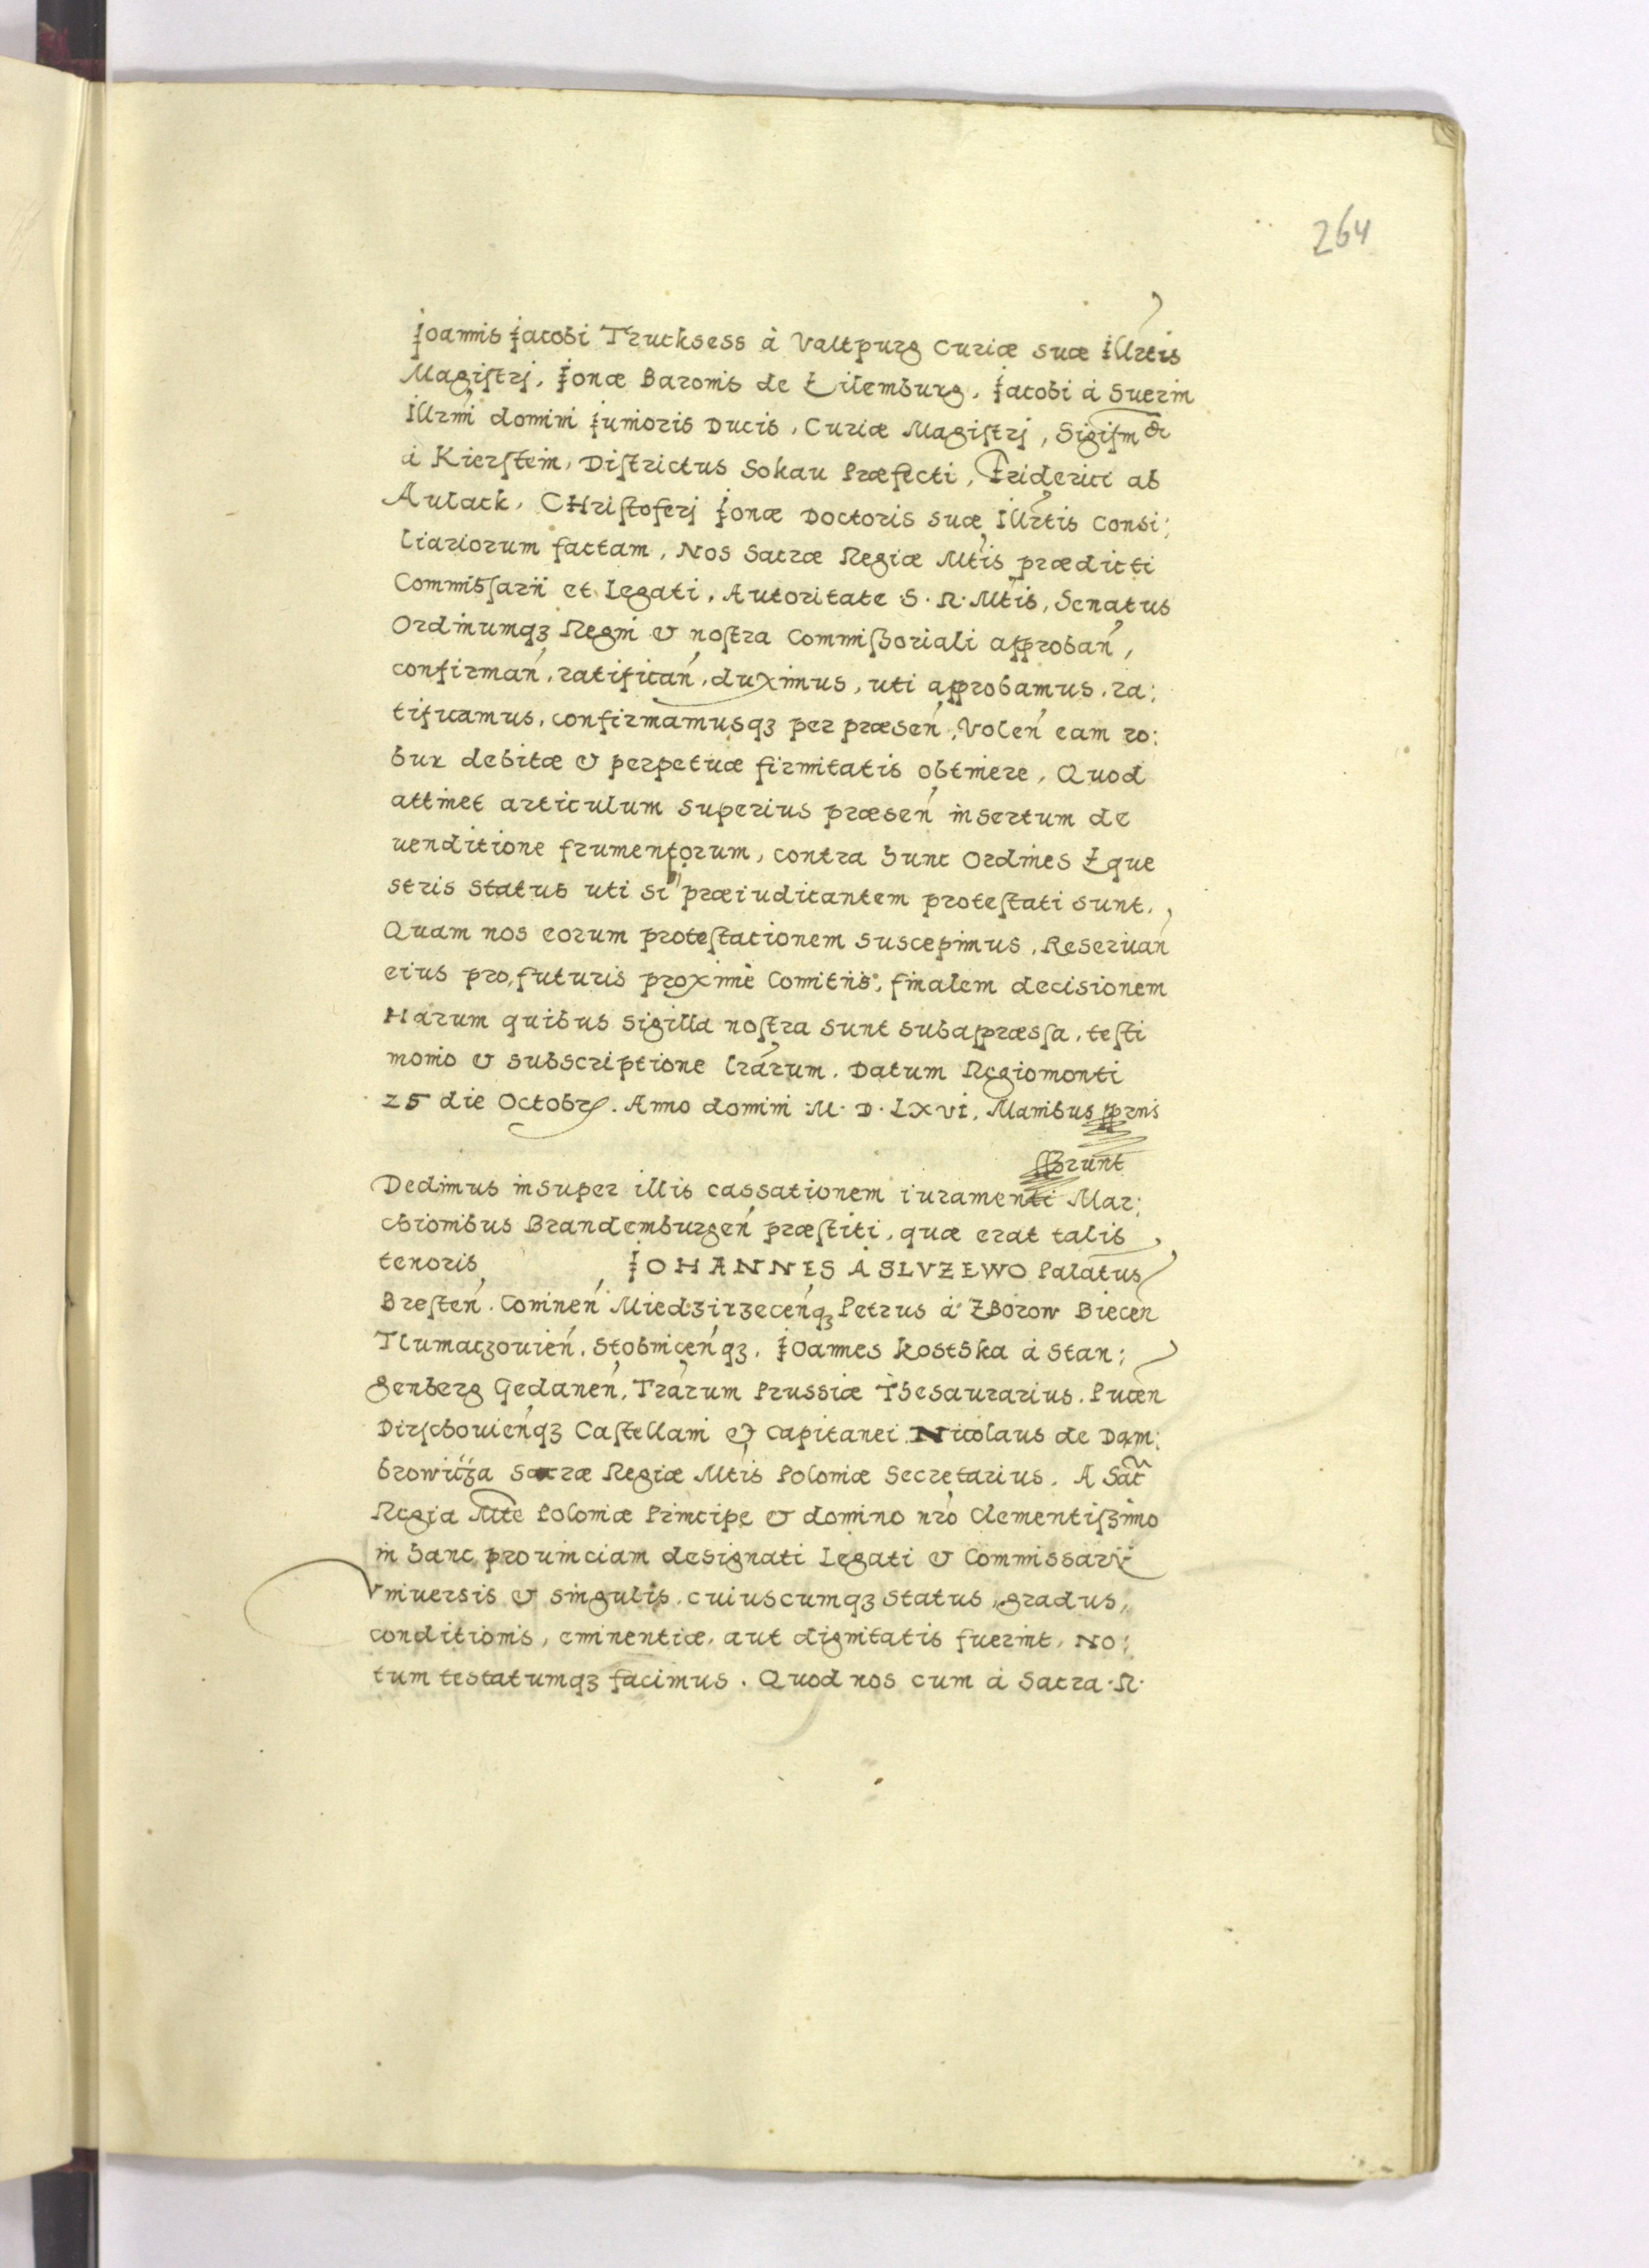 264
Joannis Jacobi Trucksess à Valtpurg Curiæ suæ Illrtis
Magistrj, Jonæ Baronis de Eilemburg, Jacobi à Suerin
Illrmi domini Junioris Ducis, Curiæ Magistrj, Sigism
à Kierstein, Districtus Sokau Præfecti, Friderici ab
Aulack, CHristoferj Jonæ Doctoris suæ Illrtis Consi:
liariorum factam, Nos Sacræ Regiæ Mtis prædicti
Commissarii et Legati, Autoritate S. R. Mtis, Senatus
Ordinumqꝫ Regni & nostra Commissoriali approbań,
confirmań, ratificań, duximus, uti approbamus, ra:
tificamus, confirmamusqꝫ per præseń, Voleń eam ro:
bur debitæ & perpetuæ firmitatis obtinere, Quod
attinet articulum superius præseń insertum de
uenditione frumentorum, contra hunc Ordines Eque
stris Status uti si præiudicantem protestati sunt,
Quam nos eorum protestationem suscepimus, Reseruań
eius pro futuris proximè Comitiis, finalem decisionem
Harum quibus Sigilla nostra sunt subappræssa, testi
monio & subscriptione lrárum. Datum Regiomonti
25 die Octobr. Anno domini M. D. LXVI, Manibus pprus
ssrunt
Dedimus insuper illis cassationem iuramenti Mar:
chionibus Brandemburgeń præstiti, quæ erat talis
tenoris, JOHANNES À SLVZEWO Palatus
Bresteń. Comineń Miedzirzeceńqꝫ Petrus à ZBorow Bieceń
Tlumaczouień, Stobniceńqꝫ, Joannes Kostka à Stan:
genberg Gedaneń, Trárum Prussiæ Thesaurarius, Puceń
Dirschouieńqꝫ Castellani & Capitanei Nicolaus de Dam:
browicza Sacræ Regiæ Mtis Poloniæ Secretarius. A Sac
Regia Mte Poloniæ Principe & domino nro Clementissimo
in hanc prouinciam designati Legati & Commissarii
Vniuersis & singulis, cuiuscumqꝫ status, gradus,
conditionis, eminentiæ, aut dignitatis fuerint, No:
tum testatumqꝫ facimus. Quod nos cum à Sacra R.